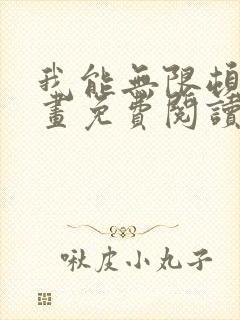 我能無限頓
畫免費閱讀
啾皮小丸子